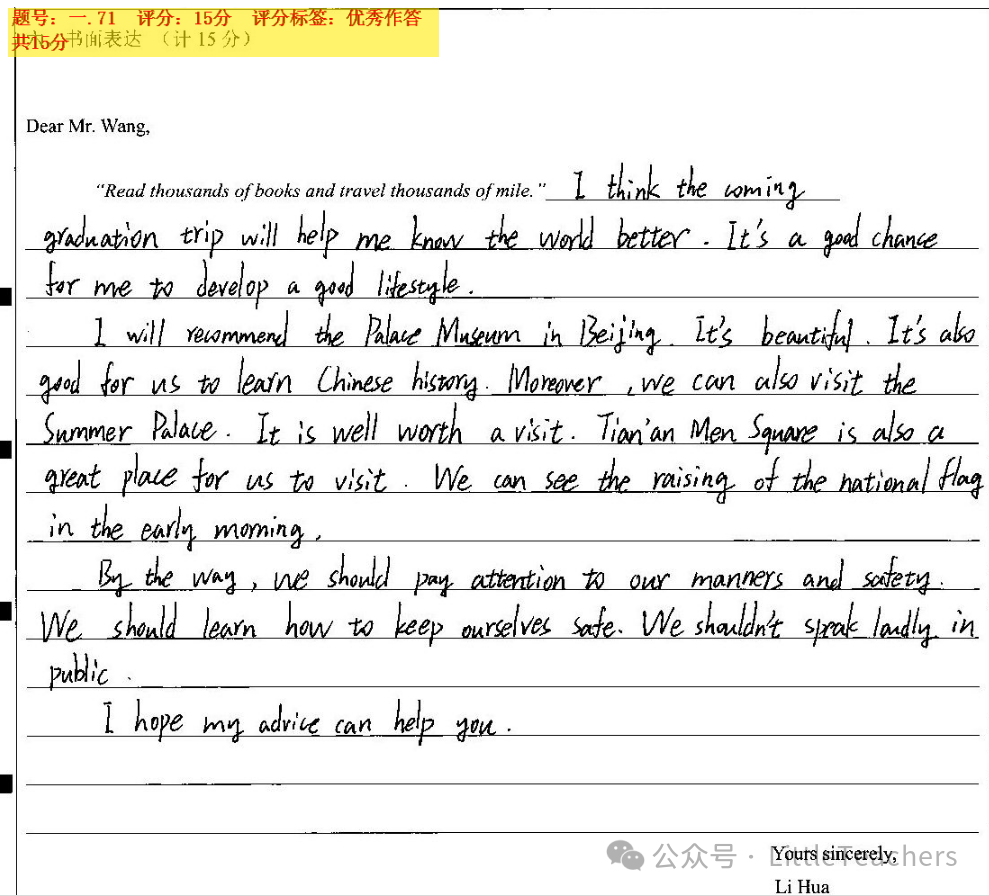 题号：一.71 评分：15分 评分标签：优秀作答
共15分 书面表达 （计 15 分）
Dear Mr. Wang,
"Read thousands of books and travel thousands of mile." I think the coming
graduation trip will help me know the world better. It's a good chance
for me to develop a good lifestyle.
I will recommend the Palace Museum in Beijing. It's beautiful. It's also
good for us to learn Chinese history. Moreover, we can also visit the
Summer Palace. It is well worth a visit. Tian'an Men Square is also a
great place for us to visit. We can see the raising of the national flag
in the early morning.
By the way, we should pay attention to our manners and safety.
We should learn how to keep ourselves safe. We shouldn't speak loudly in
public.
I hope my advice can help you.
Yours sincerely,
公众号 · LittleTeachers
Li Hua